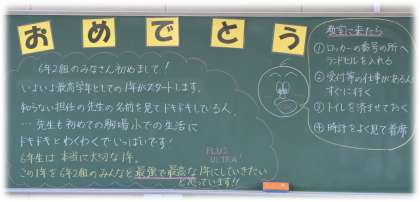 おめでとう
6年2組のみなさん初めまして!
いよいよ最高学年としての1年がスタートします。
知らない担任の先生の名前を見てドキドキしている人、
…先生も初めての駒場小での生活に
ドキドキとわくわくでいっぱいです!
6年生は本当に大切な1年。
PLUS
ULTRA!
この1年を6年2組のみんなと最強で最高な1年にしていきたい
と思っています!!
教室に来たら
①ロッカーの番号の所へ
ランドセルを入れる
②受付等の仕事がある人は
すぐに行く
③トイレを済ませておく
④時計をよく見て着席